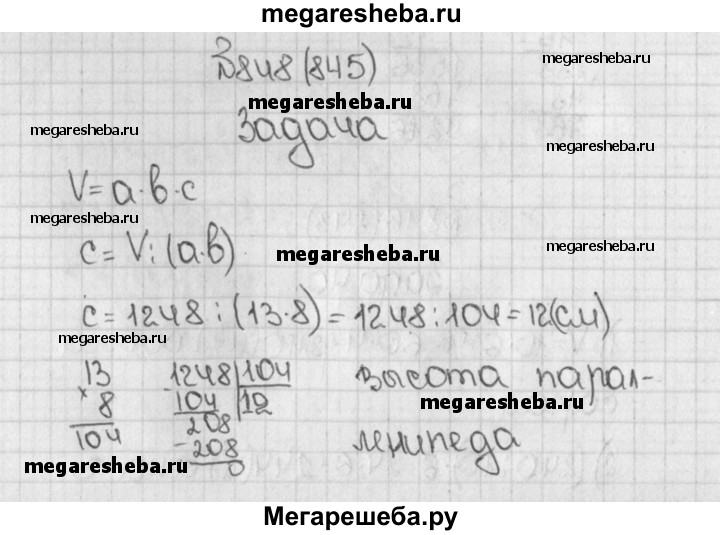 megaresheba.ru
№848 (845)
megaresheba.ru
megaresheba.ru
megaresheba.ru
Задача
megaresheba.ru
V=a·b·c
megaresheba.ru
c=V:(a·b)
megaresheba.ru
megaresheba.ru
c=1248:(13·8)=1248:104=12(см)
megaresheba.ru
megaresheba.ru
13
× 8
104
- 1248 104
104 12
- 208
208
0
высота парал-
megaresheba.ru
лепипеда
megaresheba.ru
Мегарешеба.ру